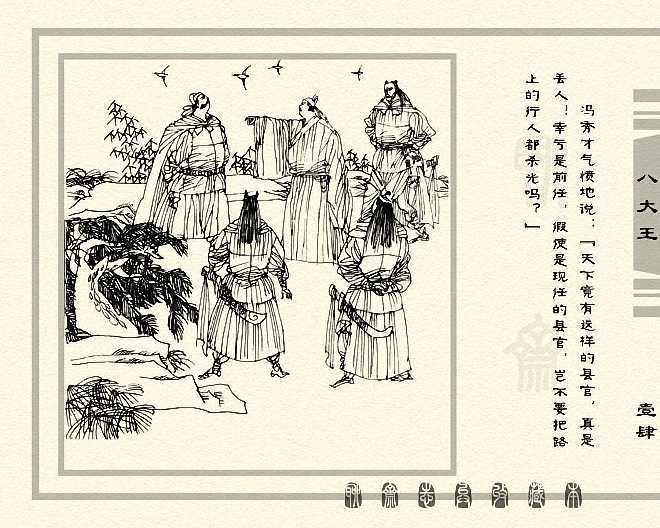 冯秀才气愤地说：「天下竟有这样的县官，真是
丢人！幸亏是前任，假使是现任的县官，岂不要把路
上的行人都杀光吗？」
八大王
壹肆